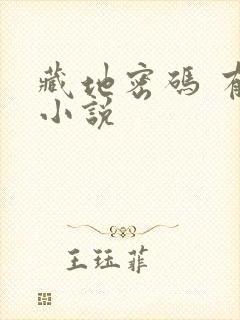 藏地密碼 有
小說
王珏菲